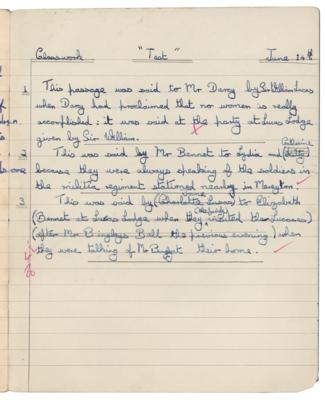 Classwork "Test" June 24th
1 This passage was said to Mr Darcy by Sir William Lucas
when Darcy had proclaimed that no women is really
accomplished: it was said at the party at Lucas Lodge
given by Sir William.
Catherine
2 This was said by Mr Bennet to Lydia and
because they were always speaking of the soldiers in
the militia regiment stationed nearby in Meryton.
3 This was said by (Charlotte Lucas) to Elizabeth
(Bennet at Lucas Lodge when they visited the Lucases)
(after Mr Bingleys Ball the previous evening) when
they were talking of Mr their home.